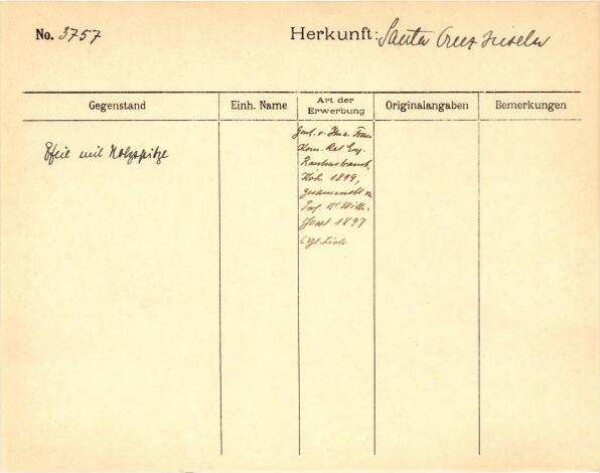 No. 3757 Herkunft: Santa Cruz Inseln
Gegenstand Einh. Name Art der Erwerbung Originalangaben Bemerkungen
Pfeil mit Holzspitze
Gesch. v. Frau
Kom. Rat Eug.
Rautenstrauch,
Köln 1899,
gesammelt v.
Prof. Dr. Wilh.
Joest 1897